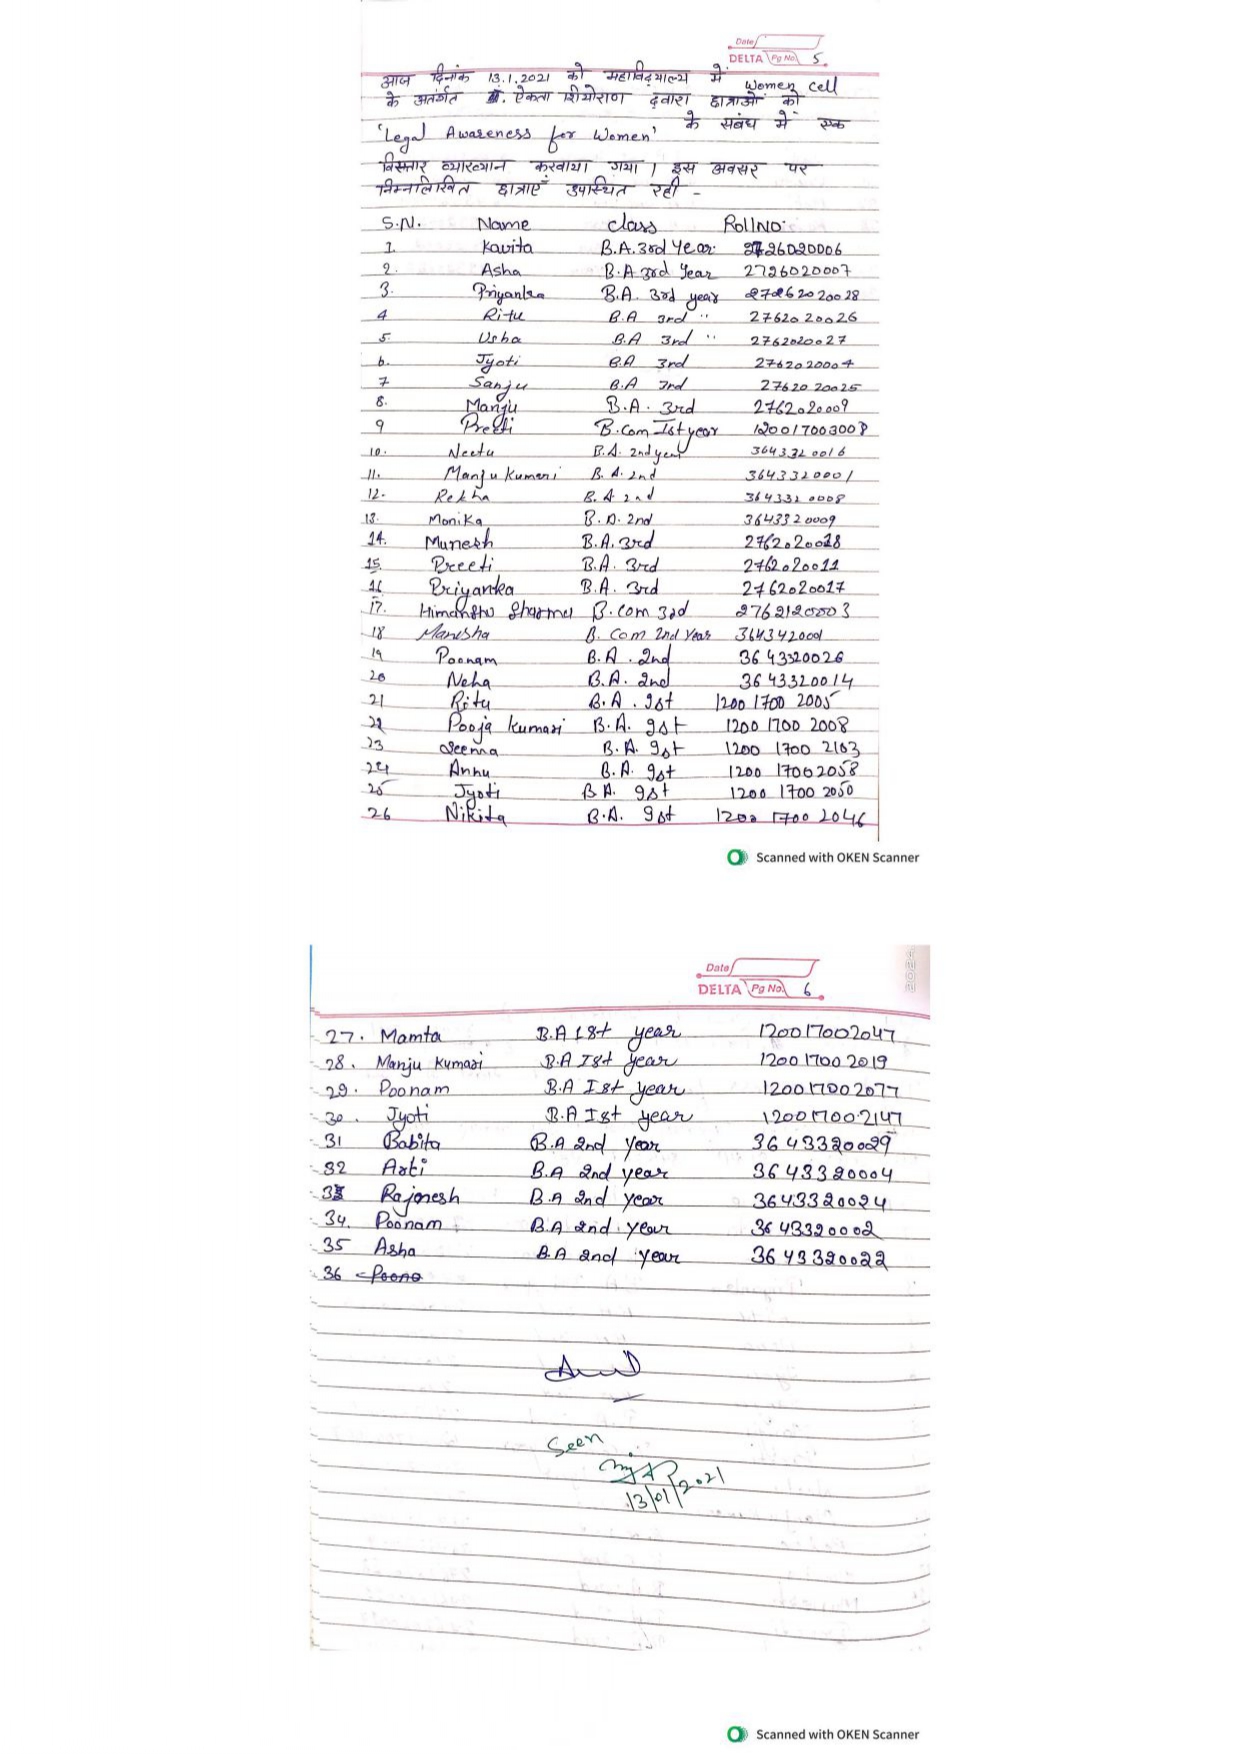 Date
DELTA Pg No. 5
आज दिनांक 13.1.2021 को महाविद्यालय में Women cell
के अंतर्गत ऐकता शियोराण द्वारा छात्राओं को
'Legal Awareness for Women' के संबंध में एक
विस्तार व्याख्यान करवाया गया। इस अवसर पर
निम्नलिखित छात्राएँ उपस्थित रही -
S.N. Name class Roll NO:
1. Kavita B.A. 3rd Year 2726020006
2. Asha B.A 3rd Year 2726020007
3. Priyanka B.A. 3rd year 27262020028
4 Ritu B.A 3rd " 2762020026
5. Usha B.A 3rd " 2762020027
6. Jyoti B.A 3rd 2762020004
7 Sanju B.A 3rd 2762020025
8. Manju B.A. 3rd 2762020009
9 Preeti B.Com Ist year 120017003008
10. Neetu B.A. 2nd year 3643320016
11. Manju Kumari B.A. 2nd 3643320001
12. Rekha B.A 2nd 3643320008
13. Monika B.A. 2nd 3643320009
14. Munesh B.A. 3rd 2762020018
15 Preeti B.A. 3rd 2762020011
16 Priyanka B.A. 3rd 2762020017
17. Himanshu Sharma B.Com 3rd 2762120003
18 Manisha B. Com 2nd Year 3643420001
19 Poonam B.A. 2nd 3643320026
20 Neha B.A. 2nd 3643320014
21 Ritu B.A. Ist 1200 1700 2005
22 Pooja kumari B.A. Ist 1200 1700 2008
23 Seema B.A. Ist 1200 1700 2103
24 Annu B.A. Ist 1200 17002058
25 Jyoti B A. Ist 1200 1700 2050
26 Nikita B.A. Ist 1200 1700 2046
Scanned with OKEN Scanner
Date
DELTA Pg No. 6
27. Mamta B.A 1st year 120017002047
28. Manju Kumari B.A Ist year 120017002019
29. Poonam B.A Ist year 120017002077
30. Jyoti B.A Ist year 120017002147
31 Babita B.A 2nd Year 3643320029
32 Arti B.A 2nd year 3643320004
33 Rajnesh B.A 2nd year 3643320024
34. Poonam B.A 2nd year 3643320002
35 Asha B.A 2nd year 3643320022
36 Poona
Seen
13/01/2021
Scanned with OKEN Scanner